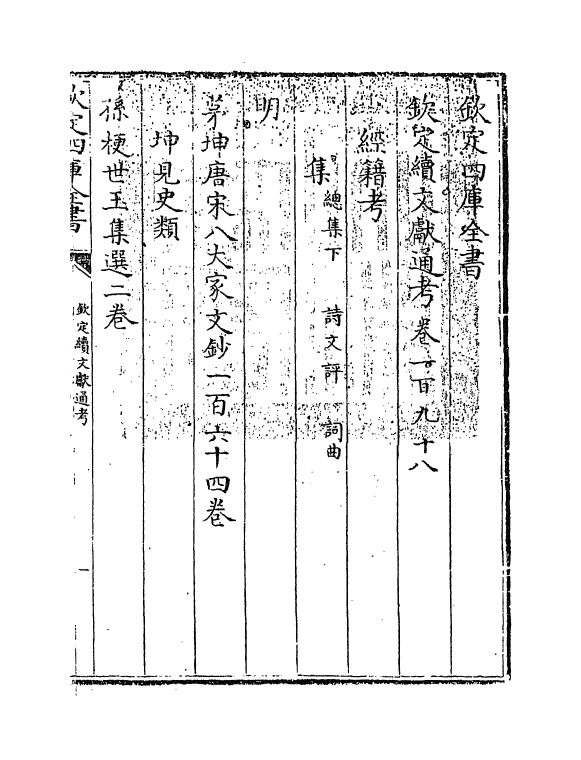 欽定四庫全書
欽定續文獻通考卷一百九十八
經籍考
集總集下　詩文評　詞曲
明
茅坤唐宋八大家文鈔一百六十四卷
坤見史類
孫梗世玉集選二卷
欽定四庫全書
欽定續文獻通考
一